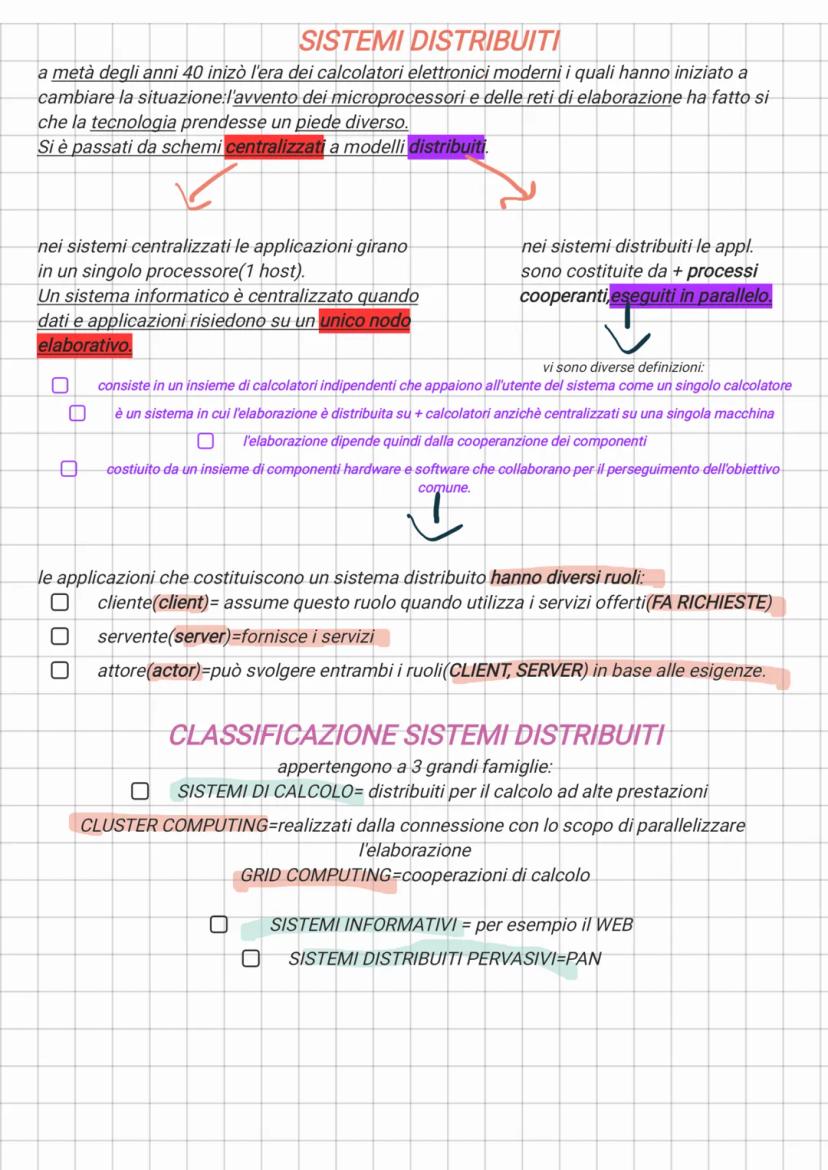 SISTEMI DISTRIBUITI
a metà degli anni 40 inizò l'era dei calcolatori elettronici moderni i quali hanno iniziato a
cambiare la situazione:l'avvento dei microprocessori e delle reti di elaborazione ha fatto si
che la tecnologia prendesse un piede diverso.
Si è passati da schemi centralizzati a modelli distribuiti.
nei sistemi centralizzati le applicazioni girano
in un singolo processore(1 host).
Un sistema informatico è centralizzato quando
dati e applicazioni risiedono su un unico nodo
elaborativo.
nei sistemi distribuiti le appl.
sono costituite da + processi
cooperanti,eseguiti in parallelo.
vi sono diverse definizioni:
consiste in un insieme di calcolatori indipendenti che appaiono all'utente del sistema come un singolo calcolatore
è un sistema in cui l'elaborazione è distribuita su + calcolatori anzichè centralizzati su una singola macchina
l'elaborazione dipende quindi dalla cooperanzione dei componenti
costiuito da un insieme di componenti hardware e software che collaborano per il perseguimento dell'obiettivo
comune.
le applicazioni che costituiscono un sistema distribuito hanno diversi ruoli:
cliente(client)= assume questo ruolo quando utilizza i servizi offerti(FA RICHIESTE)
servente(server)=fornisce i servizi
attore(actor)=può svolgere entrambi i ruoli(CLIENT, SERVER) in base alle esigenze.
CLASSIFICAZIONE SISTEMI DISTRIBUITI
appertengono a 3 grandi famiglie:
SISTEMI DI CALCOLO= distribuiti per il calcolo ad alte prestazioni
CLUSTER COMPUTING=realizzati dalla connessione con lo scopo di parallelizzare
l'elaborazione
GRID COMPUTING=cooperazioni di calcolo
SISTEMI INFORMATIVI = per esempio il WEB
SISTEMI DISTRIBUITI PERVASIVI=PAN